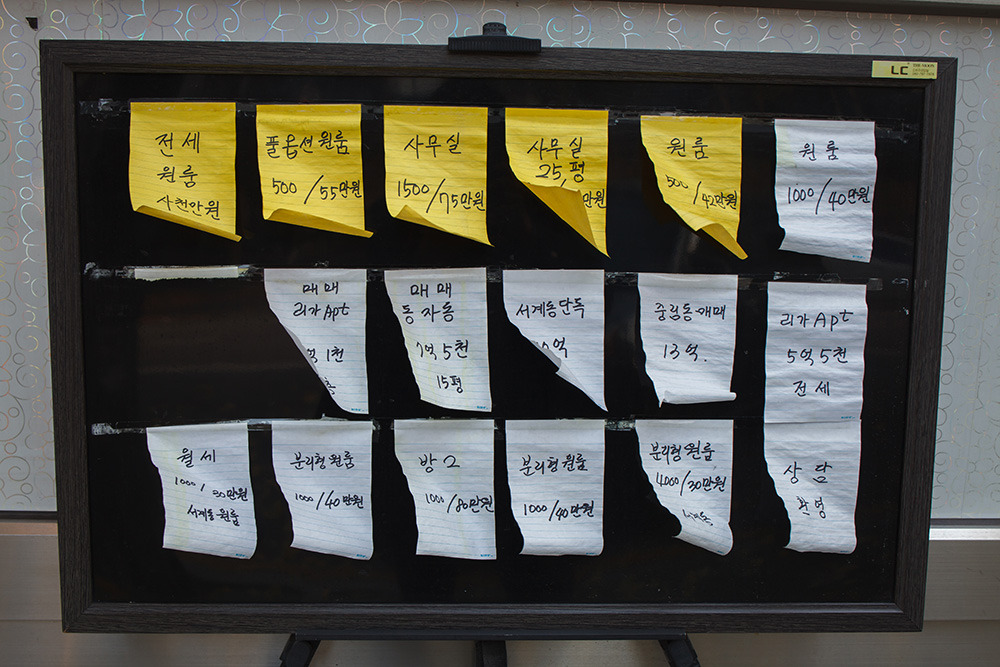 LC
전세
원룸
사천만원
풀옵션원룸
500/55만원
사무실
1500/75만원
사무실
25평
만원
원룸
500/42만원
원룸
1000/40만원
매매
리가Apt
억1천
매매
동자동
7억5천
15평
서계동단독
억
중림동매매
13억.
리가Apt
5억5천
전세
월세
1000/
서계동원룸
분리형원룸
1000/40만원
방2
1000/80만원
분리형원룸
1000/40만원
분리형원룸
4000/30만원
서계동
상담
환영